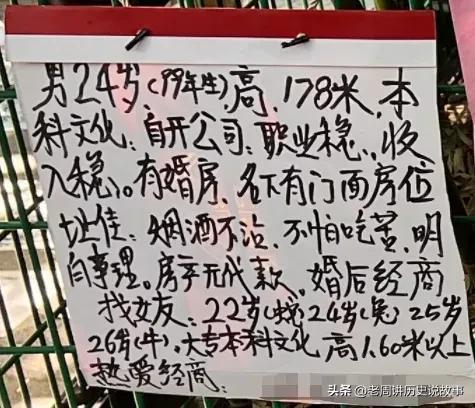 男24岁(99年生)高.178米,本
科文化;自开公司;职业稳,收
入稳。有婚房,名下有门面房位
址佳;烟酒不沾.不怕吃苦,明
白事理。房车无代款,婚后经商
找女友:22岁(蛇)24岁(兔)25岁
26岁(牛),大专本科文化 高1.60米以上
热爱经商:
头条 @老周讲历史说故事